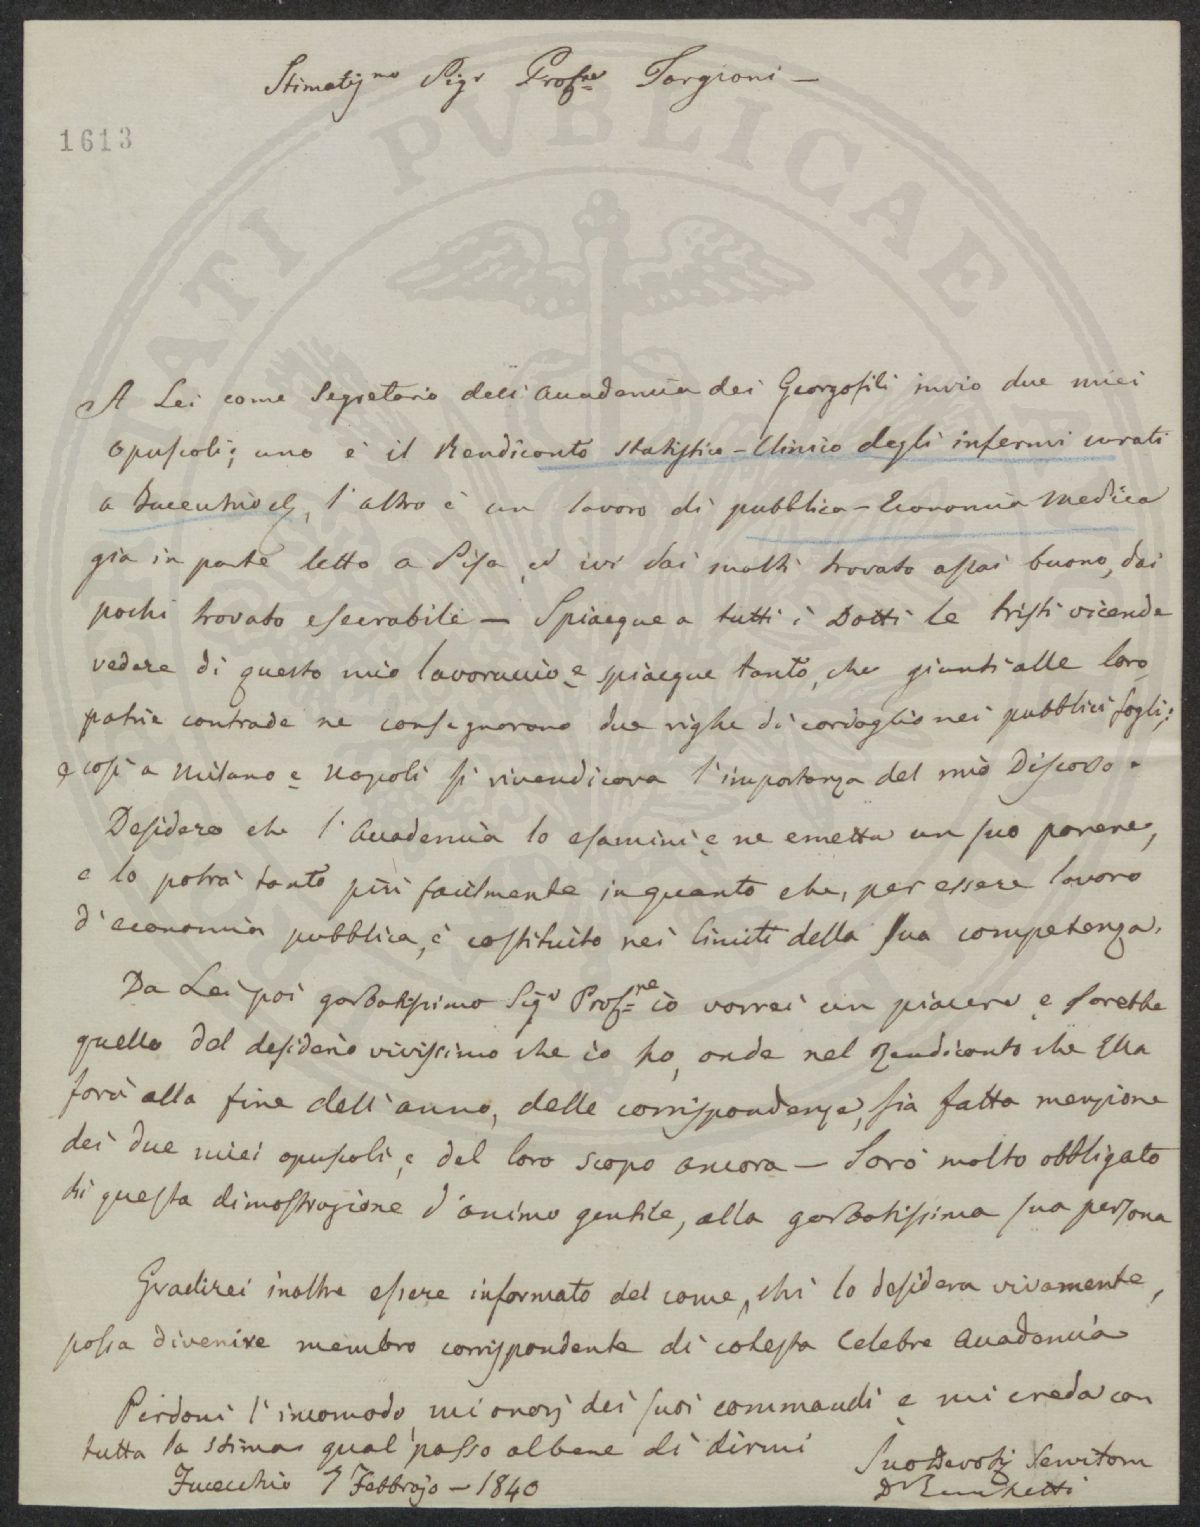 Stimatiss.mo Sig.r Prof.re Targioni —
1613
PVBLICAE
A Lei come Segretario dell'Accademia dei Georgofili invio due miei
opuscoli; uno è il Rendiconto statistico-Clinico degli infermi curati
a Fucecchio, l'altro è un lavoro di pubblica-Economia Medica
già in parte letto a Pisa, ed ivi dai molti trovato assai buono, dai
pochi trovato esecrabile — Spiacque a tutti i Dotti le tristi vicende
vedere di questo mio lavoruccio e spiacque tanto, che giunti alle loro
patrie contrade ne consegnarono due righe di cordoglio nei pubblici fogli;
e così a Milano e Napoli si rivendicava l'importanza del mio Discorso.
Desidero che l'Accademia lo esamini e ne emetta un suo parere,
e lo potrà tanto più facilmente inquanto che, per essere lavoro
d'economia pubblica, è costituito nei limiti della sua competenza.
Da Lei poi garbatissimo Sig.r Prof.re io vorrei un piacere e sarebbe
quello del desiderio vivissimo che io ho, onde nel Rendiconto che Ella
farà alla fine dell'anno, delle corrispondenze, sia fatta menzione
dei due miei opuscoli, e del loro scopo ancora — Sarò molto obbligato
di questa dimostrazione d'animo gentile, alla garbatissima sua persona
Gradirei inoltre essere informato del come, chi lo desidera vivamente,
possa divenire membro corrispondente di cotesta celebre Accademia
Perdoni l'incomodo, mi onori dei suoi commandi e mi creda con
tutta la stima qual passo al bene di dirmi
Fucecchio 7 Febbrajo — 1840
Suo Devot. Servitore